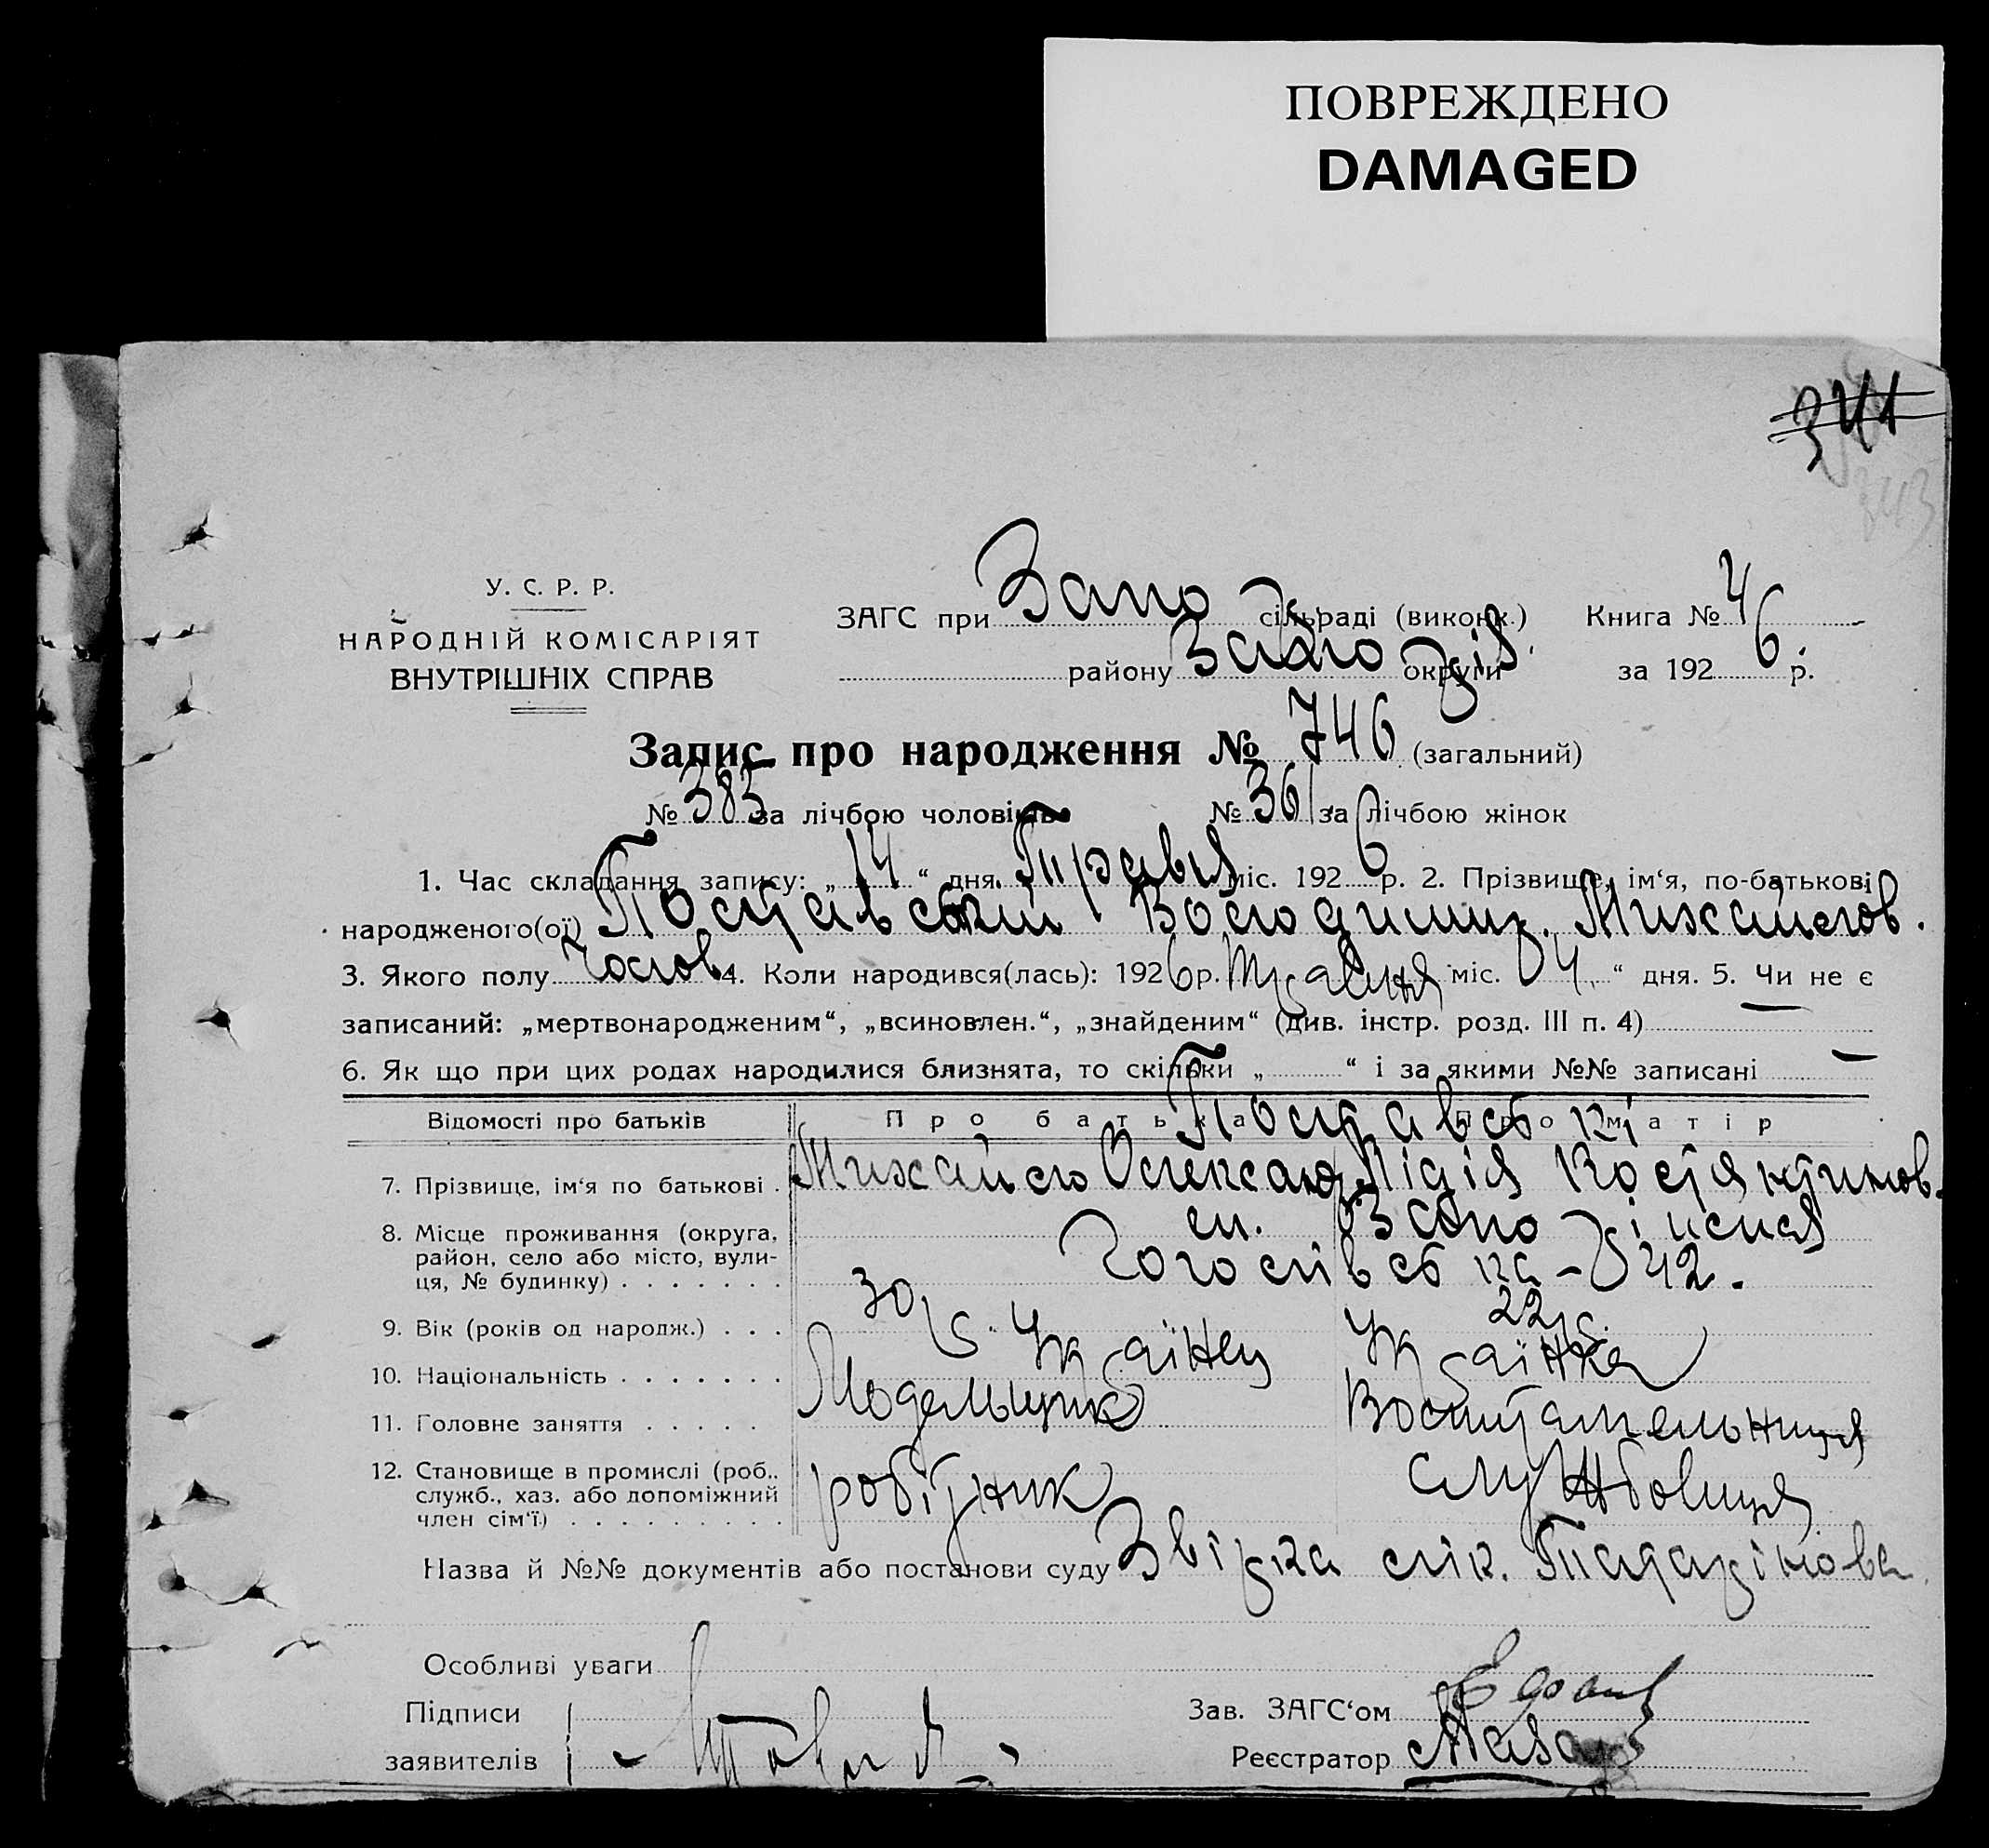 ПОВРЕЖДЕНО
DAMAGED
341
343
У. С. Р. Р.
НАРОДНІЙ КОМІСАРІЯТ
ВНУТРІШНІХ СПРАВ
ЗАГС при Запо сільраді (виконк.) Книга № 4
району Запо округи за 1926 р.
Запис про народження № 746 (загальний)
№ 385 за лічбою чоловіків № 361 за лічбою жінок
1. Час складання запису: „14“ дня Травня міс. 1926 р. 2. Прізвище, ім'я, по-батькові
народженого(ої) Поставський Володимир. Михайлов.
3. Якого полу Чолов 4. Коли народився(лась): 1926 р. Травня міс. 04 “ дня. 5. Чи не є
записаний: „мертвонародженим“, „всиновлен.“, „знайденим“ (див. інстр. розд. III п. 4) —
6. Як що при цих родах народилися близнята, то скільки „ “ і за якими №№ записані —
Відомості про батьків Про батька Про матір
Поставські
7. Прізвище, ім'я по батькові . Михайло Олександ Лідія Костянтинов.
8. Місце проживання (округа, район, село або місто, вулиця, № будинку) . . . . . . .
42.
9. Вік (років од народж.) . . . 30 р. 22 р.
10. Національність . . . . . . . Українец Українка
11. Головне заняття . . . . . Модельщик Воспитательниця
12. Становище в промислі (роб., служб., хаз. або допоміжний член сім'ї) . . . . . . . . . робітник службовиця
Назва й №№ документів або постанови суду Звірка лік.
Особливі уваги
Підписи
заявителів
Зав. ЗАГС'ом
Реєстратор